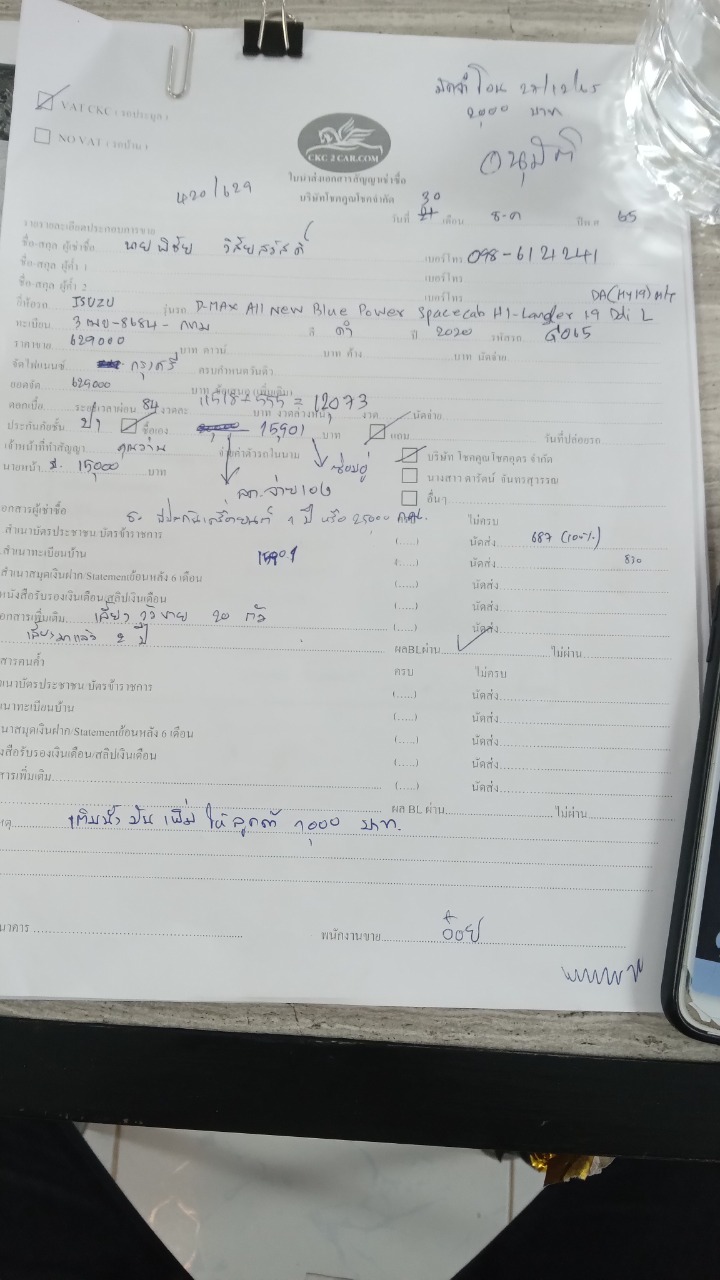 มัดจำ โอน 27/12/65
2,000 บาท
VAT CKC ( รถประมูล )
NO VAT ( รถบ้าน )
อนุมัติ
CKC 2 CAR.COM
ใบนำส่งเอกสารสัญญาเช่าซื้อ
420/629
บริษัทโชคคูณโชคจำกัด
30
วันที่ เดือน ธ.ค ปี พ.ศ 65
รายละเอียดประกอบการขาย
ชื่อ-สกุล ผู้เช่าซื้อ นาย พิชัย เบอร์โทร 098-6121241
ชื่อ-สกุล ผู้ค้ำ 1 เบอร์โทร
ชื่อ-สกุล ผู้ค้ำ 2 เบอร์โทร
DA(MY19) M/T
ยี่ห้อรถ ISUZU รุ่นรถ D-MAX All New Blue Power Spacecab Hi-Lander 1.9 Ddi L
ทะเบียน 8684 - กทม สี ดำ ปี 2020 รหัสรถ
ราคาขาย 629000 บาท ดาวน์ บาท ค้าง บาท นัดจ่าย
จัดไฟแนนซ์ กรุงศรี ครบกำหนดวันที่
ยอดจัด 629000 บาท
ดอกเบี้ย ระยะเวลาผ่อน 84 งวดละ 11518+555 = 12,073 บาท งวดล่วงหน้า งวด นัดจ่าย
ประกันภัยชั้น ป1 ซื้อเอง 15,901 บาท แถม วันที่ปล่อยรถ
เจ้าหน้าที่ทำสัญญา คุณวาน จ่ายค่าตัวรถในนาม บริษัท โชคคูณโชคอุดร จำกัด
นายหน้า 15,000 บาท ซ่อมอู่ นางสาว ดารัตน์ จันทรสุวรรณ
ลค.จ่ายเอง อื่นๆ
เอกสารผู้เช่าซื้อ ประกันเครื่องยนต์ 1 ปี หรือ 25,000 ไม่ครบ
สำเนาบัตรประชาชน/บัตรข้าราชการ (.....) นัดส่ง 687 (100%)
สำเนาทะเบียนบ้าน 15901 (.....) นัดส่ง 830
สำเนาสมุดเงินฝาก/Statementย้อนหลัง 6 เดือน (.....) นัดส่ง
หนังสือรับรองเงินเดือน/สลิปเงินเดือน (.....) นัดส่ง
เอกสารเพิ่มเติม เลี้ยงวัวขาย 20 ตัว (.....) นัดส่ง
เลี้ยงมาแล้ว 2 ปี ผลBLผ่าน ไม่ผ่าน
สารคนค้ำ ครบ ไม่ครบ
เนาบัตรประชาชน/บัตรข้าราชการ (.....) นัดส่ง
เนาทะเบียนบ้าน (.....) นัดส่ง
นาสมุดเงินฝาก/Statementย้อนหลัง 6 เดือน (.....) นัดส่ง
งสือรับรองเงินเดือน/สลิปเงินเดือน (.....) นัดส่ง
สารเพิ่มเติม (.....) นัดส่ง
ผล BL ผ่าน ไม่ผ่าน
ตุ เติมน้ำมันเพิ่มให้ลูกค้า 1,000 บาท.
นาคาร พนักงานขาย อ้อย